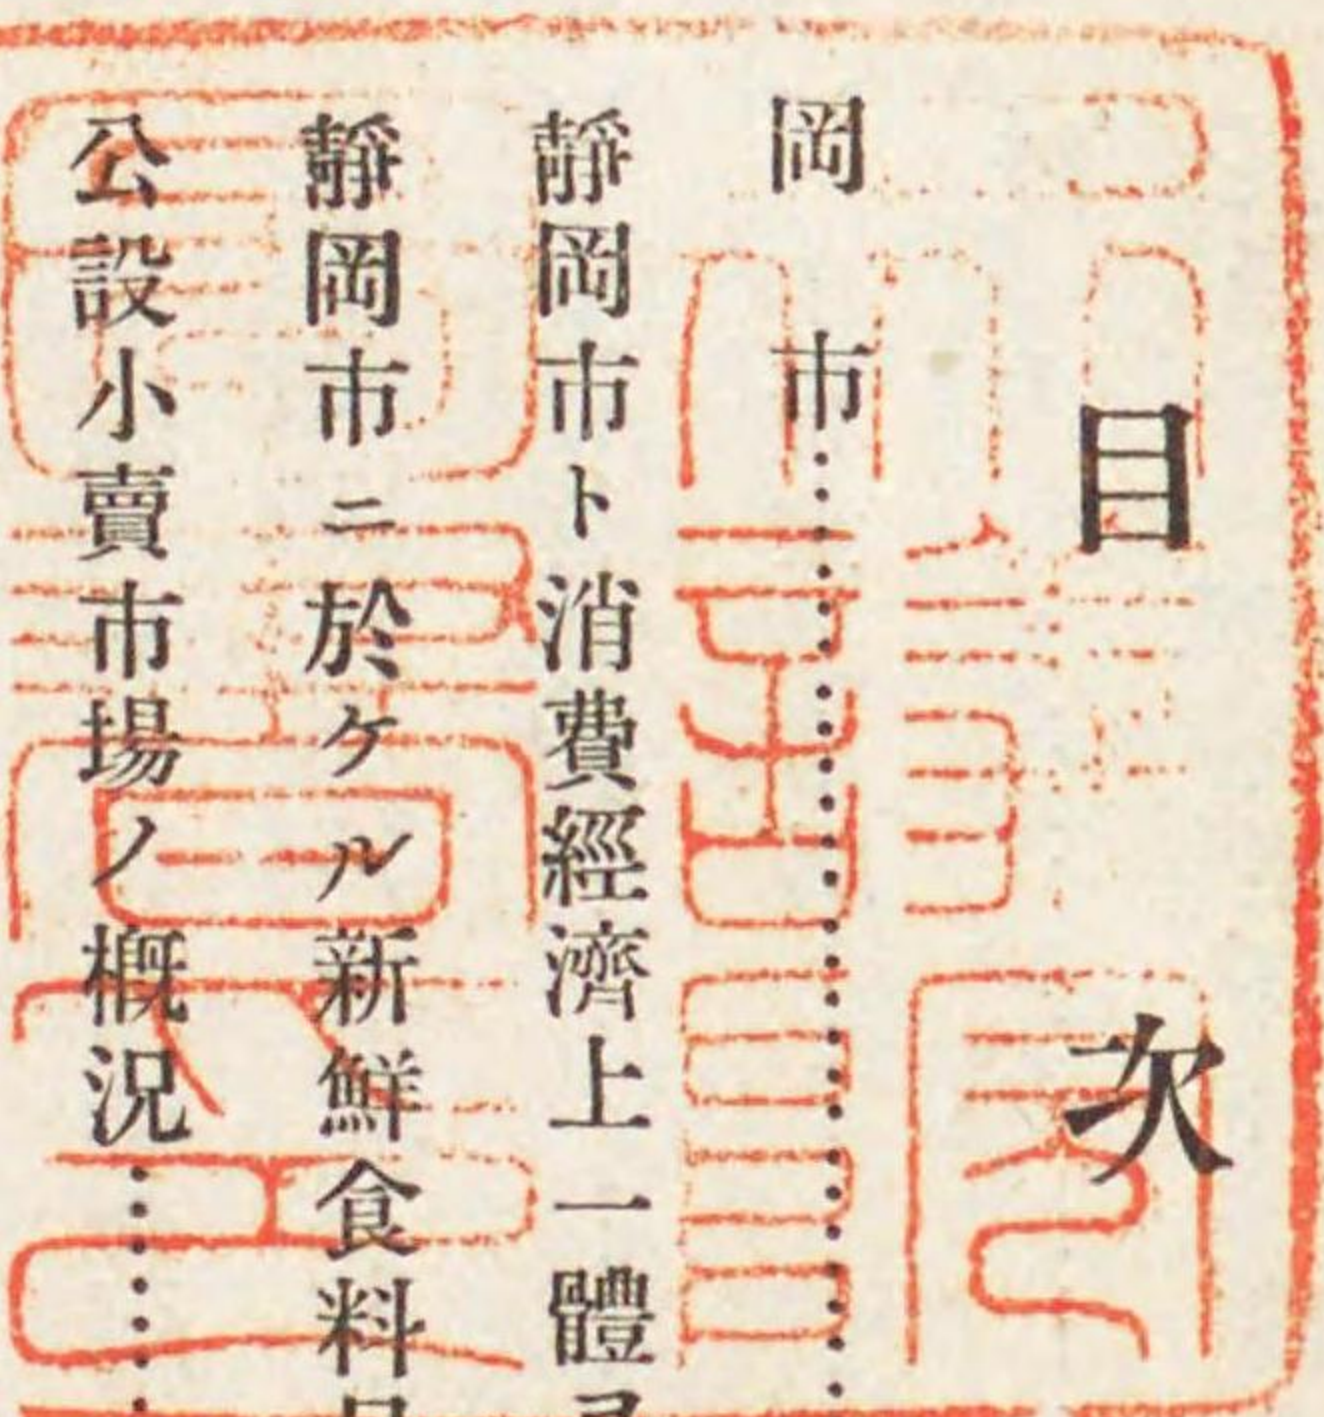 目次
岡市……………
靜岡市ト消費經濟上一體
靜岡市ニ於ケル新鮮食料
公設小賣市場ノ概況……